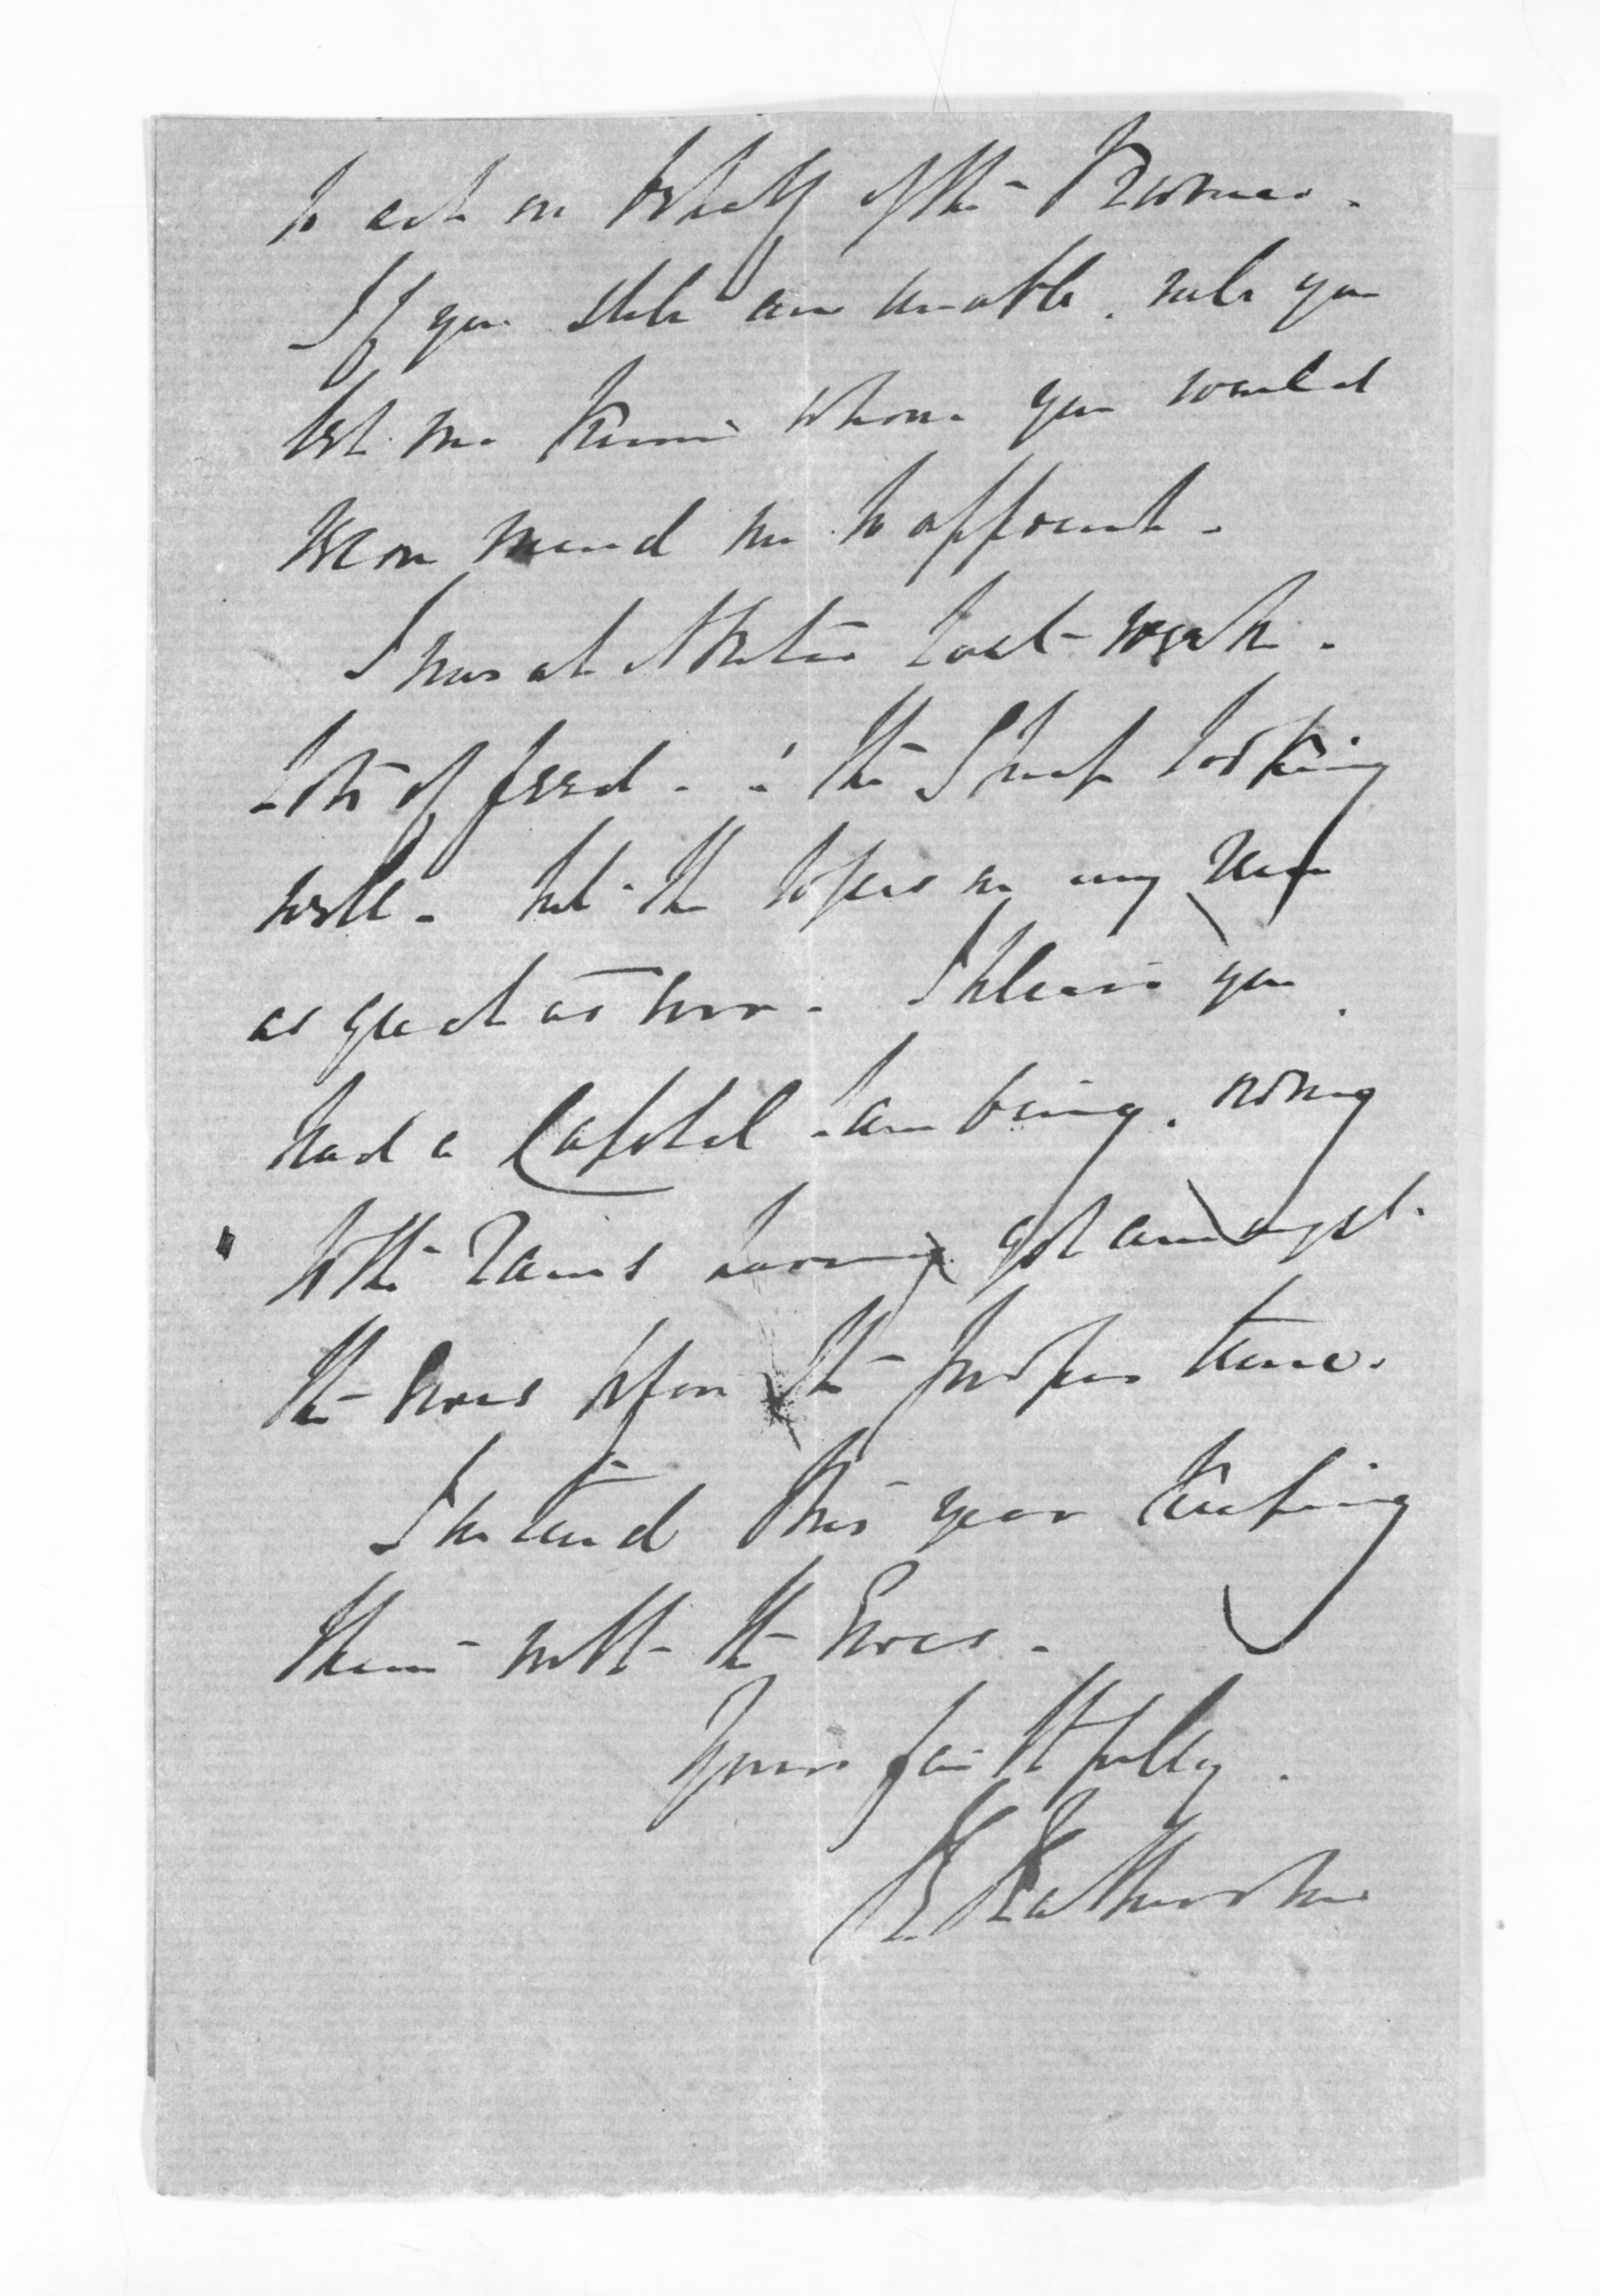 to act on behalf of the Runner.
If you still are unable, will you
let me know whom you would
recommend me to appoint.
I was at last week.
Lots of feed. & the Sheep looking
well. but the losses in my
as great as ever. I believe you
had a Capital Lambing. owing
to the Rams having got amongst
the Ewes before the proper time.
I intend this year keeping
them with the Ewes.
Yours faithfully.